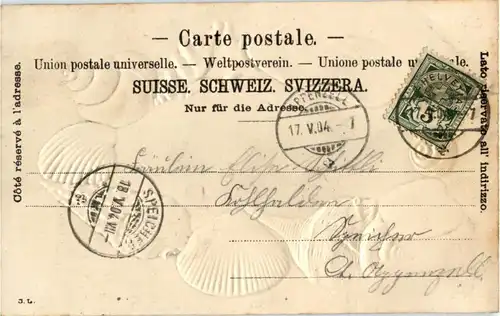 — Carte postale. —
Union postale universelle. — Weltpostverein. — Unione postale universale.
SUISSE. SCHWEIZ. SVIZZERA.
Nur für die Adresse.
Côté réservé à l'adresse.
Lato riservato all'indirizzo.
HELVETIA
5
APPENZELL
17. V. 04. – 7
17. V. 04
7
SPEICHER
18. V. 04. VII
Fräulein Elise
Speicher
Ct. Appenzell
J. L.